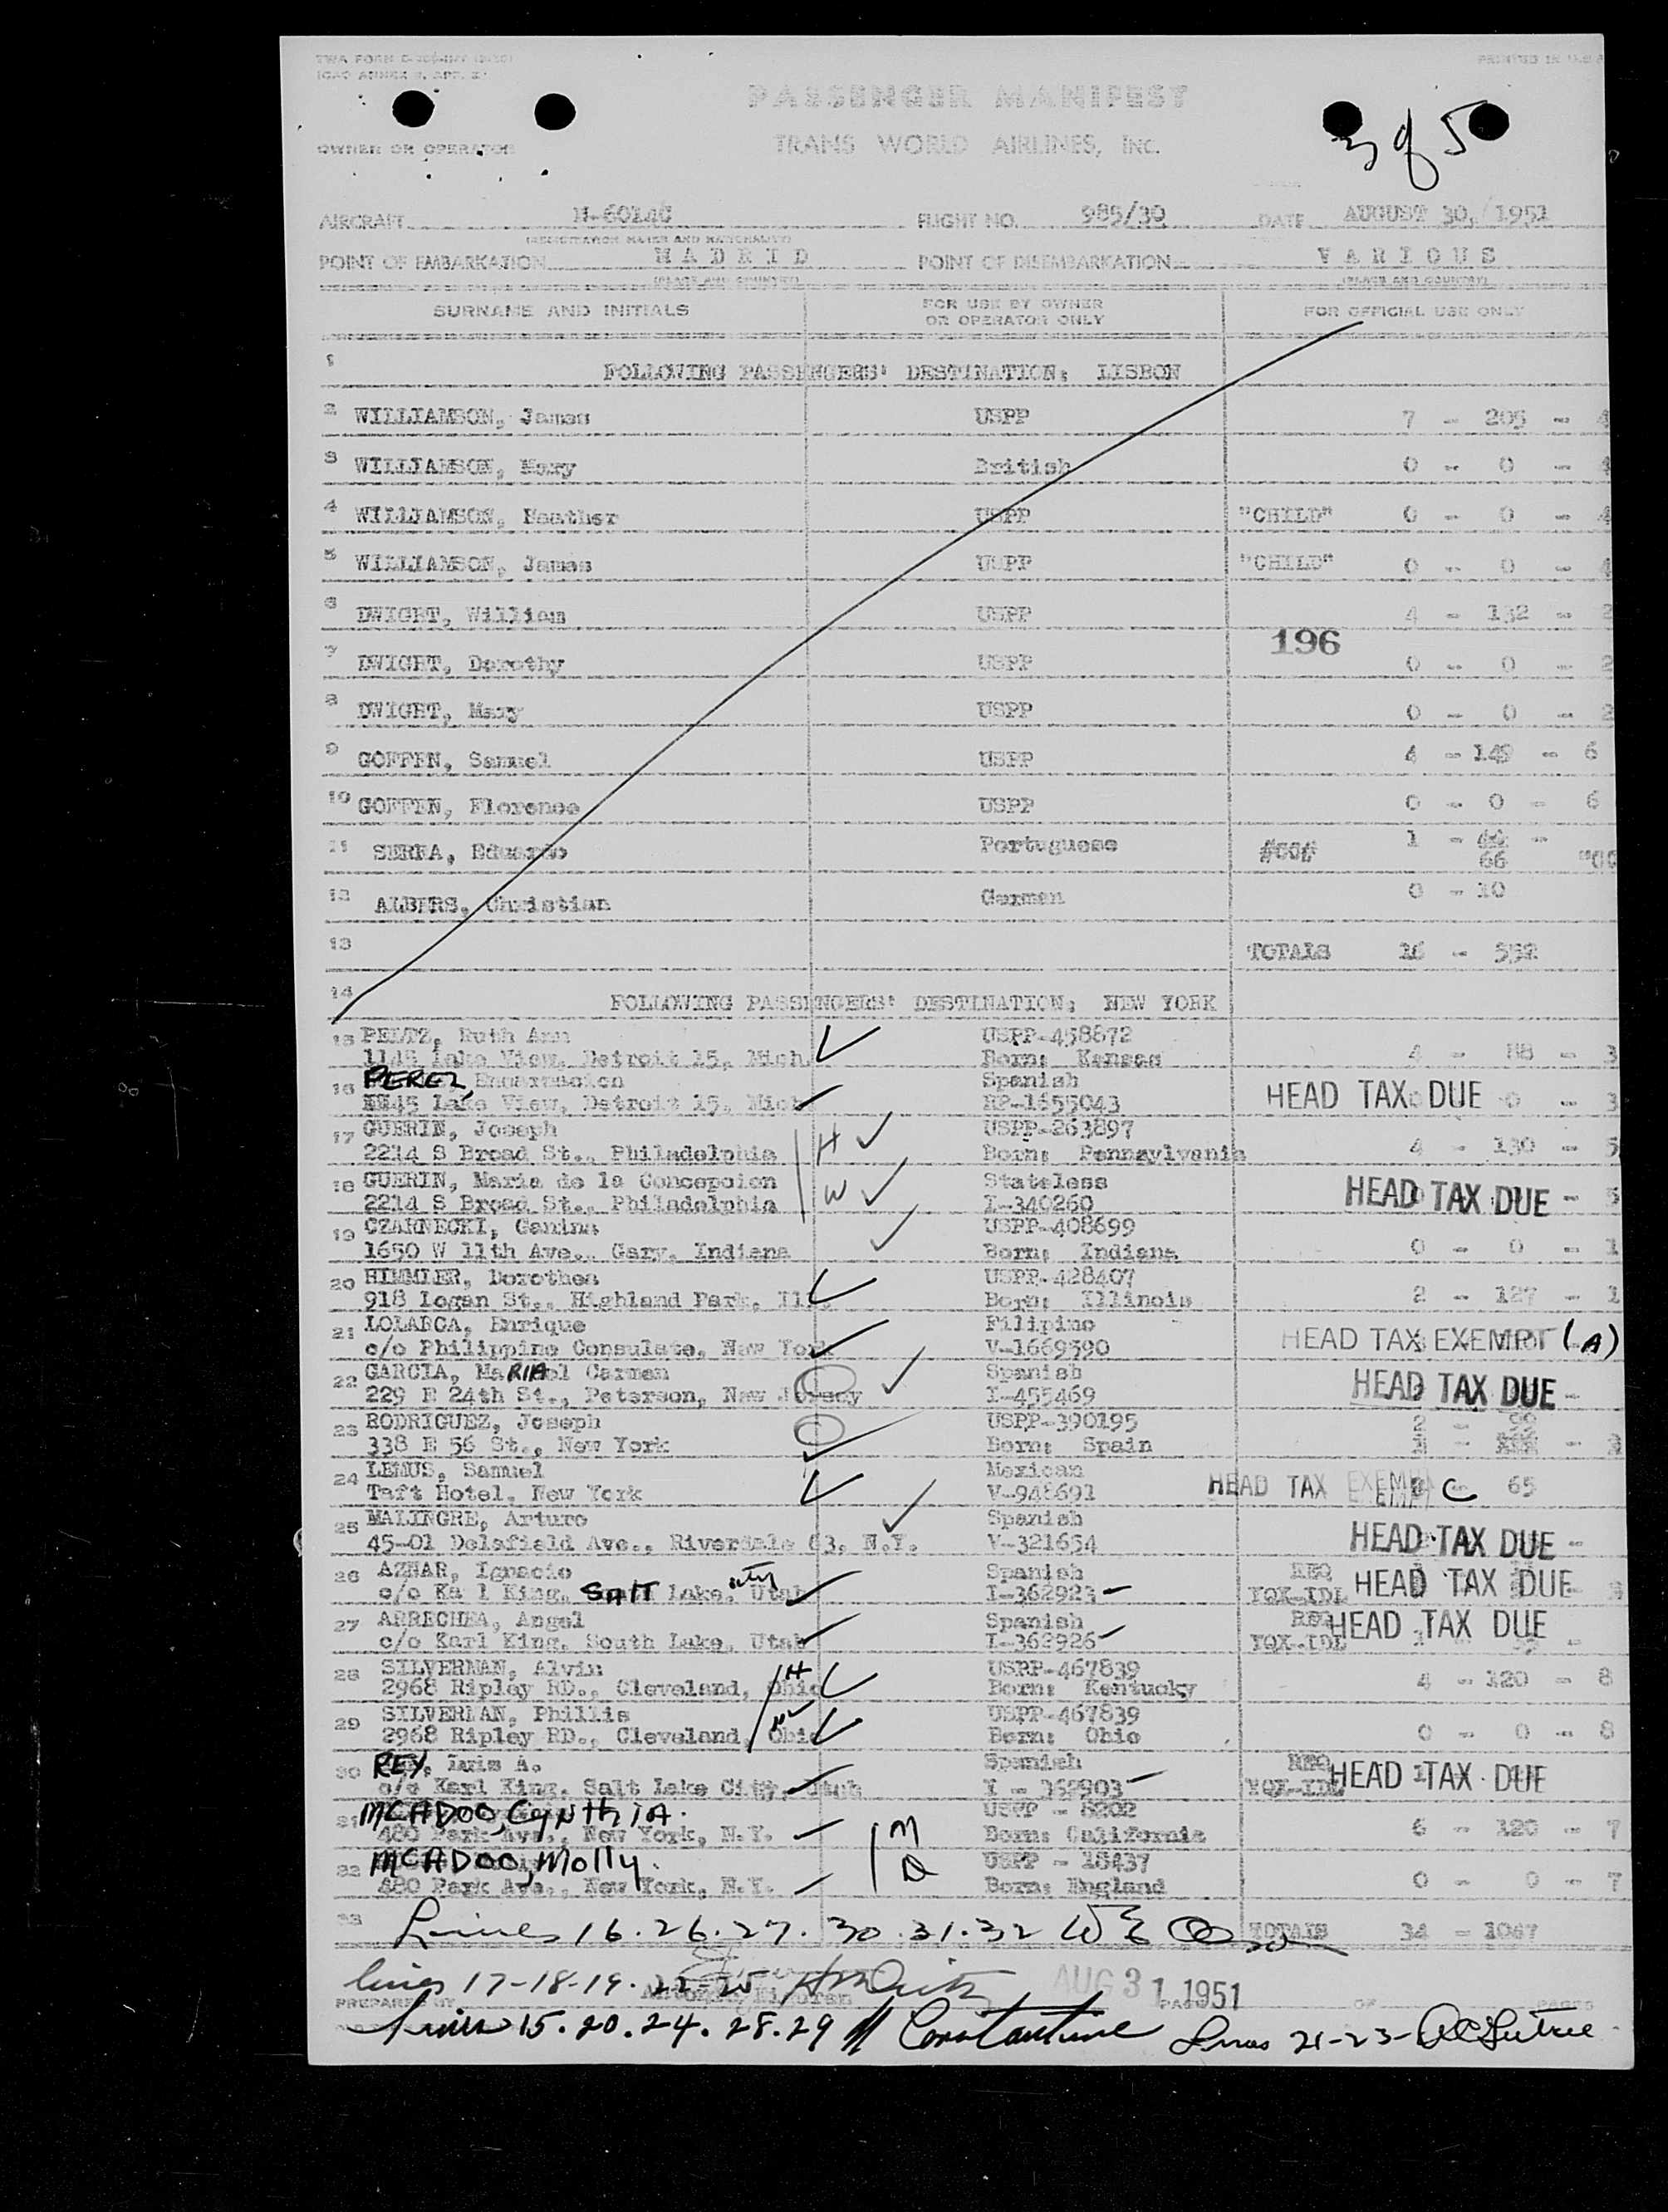 PRINTED IN U.S.A
PASSENGER MANIFEST
3 of 5
OWNER OR OPERATOR
TRANS WORLD AIRLINES, INC.
AIRCRAFT N-6014C FLIGHT NO. 985/30 DATE AUGUST 30, 1951
POINT OF EMBARKATION MADRID POINT OF DISEMBARKATION VARIOUS
(PLACE AND COUNTRY) (PLACE AND COUNTRY)
SURNAME AND INITIALS FOR USE BY OWNER OR OPERATOR ONLY FOR OFFICIAL USE ONLY
1 FOLLOWING PASSENGERS' DESTINATION: LISBON
2 WILLIAMSON, James USPP 7 - 205 - 4
3 WILLIAMSON, Mary British 0 - 0 - 4
4 WILLIAMSON, Heather USPP "CHILD" 0 - 0 - 4
5 WILLIAMSON, James USPP "CHILD" 0 - 0 - 4
6 DWIGHT, William USPP 4 - 132 - 2
196
7 DWIGHT, Dorothy USPP 0 - 0 - 2
8 DWIGHT, Mary USPP 0 - 0 - 2
9 GOFFEN, Samuel USPP 4 - 149 - 6
10 GOFFEN, Florence USPP 0 - 0 - 6
11 SERRA, Eduardo Portuguese 1 - 66
12 ALBERS, Christian German 0 - 10
13 TOTALS 16 - 552
14 FOLLOWING PASSENGERS' DESTINATION: NEW YORK
15 PELTZ, Ruth Ann USPP-458872
1145 Lake View, Detroit 15, Mich. Born: Kansas 4 - 88 - 3
16 PEREZ, Encarnacion Spanish HEAD TAX DUE 0 - 3
1145 Lake View, Detroit 15, Mich RP-1655043
17 GUERIN, Joseph H USPP-263897
2214 S Broad St., Philadelphia Born: Pennsylvania 4 - 130 - 5
18 GUERIN, Maria de la Concepcion W Stateless HEAD TAX DUE - 5
2214 S Broad St., Philadelphia I-340260
19 CZARNECKI, Ganina USPP-408699
1650 W 11th Ave., Gary, Indiana Born: Indiana 0 - 0 - 1
20 HIMMLER, Dorothea USPP-428407
918 Logan St., Highland Park, Ill. Born: Illinois 2 - 127 - 1
21 LOLARGA, Enrique Filipino HEAD TAX EXEMPT (A)
c/o Philippine Consulate, New York V-1669590
22 GARCIA, MaRIA del Carmen Spanish HEAD TAX DUE -
229 E 24th St., Peterson, New Jersey I-455469
23 RODRIGUEZ, Joseph USPP-390195
338 E 56 St., New York Born: Spain
24 LEMUS, Samuel Mexican HEAD TAX EXEMPT C 65
Taft Hotel, New York V-948691
25 MALINGRE, Arturo Spanish HEAD TAX DUE -
45-01 Delafield Ave., Riverdale 63, N.Y. V-321654
26 AZNAR, Ignacio Spanish REQ HEAD TAX DUE
c/o Ka l King, SALT Lake, city Utah I-362923 YQX-IDL
27 ARRECHEA, Angel Spanish REQ HEAD TAX DUE
c/o Karl King, South Lake, Utah I-362926 YQX-IDL
28 SILVERMAN, Alvin H USPP-467839
2968 Ripley RD., Cleveland, Ohio Born: Kentucky 4 - 120 - 8
29 SILVERMAN, Phillis W USPP-467839
2968 Ripley RD., Cleveland, Ohio Born: Ohio 0 - 0 - 8
30 REY, Luis A. Spanish REQ HEAD TAX DUE
c/o Karl King, Salt Lake City, Utah I - 362903 YQX-IDL
31 MCADOO, CynthiA. USPP - 8202
480 Park Ave., New York, N.Y. M Born: California 6 - 120 - 7
32 MCADOO, Molly. USPP - 18437
480 Park Ave., New York, N.Y. D Born: England 0 - 0 - 7
33 Lines 16.26.27.30.31.32 TOTALS 34 - 1067
lines 17-18-19-22-25 AUG 31 1951
PREPARED BY PAGE OF PAGES
Lines 15.20.24.28.29 Constantine Lines 21-23-